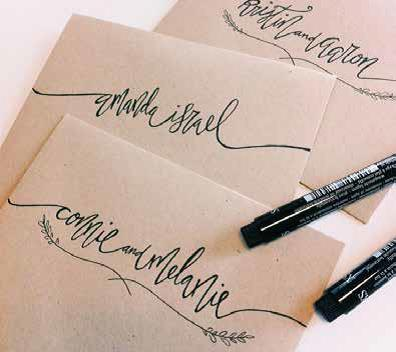 kristin and aaron
amanda israel
connie and melanie